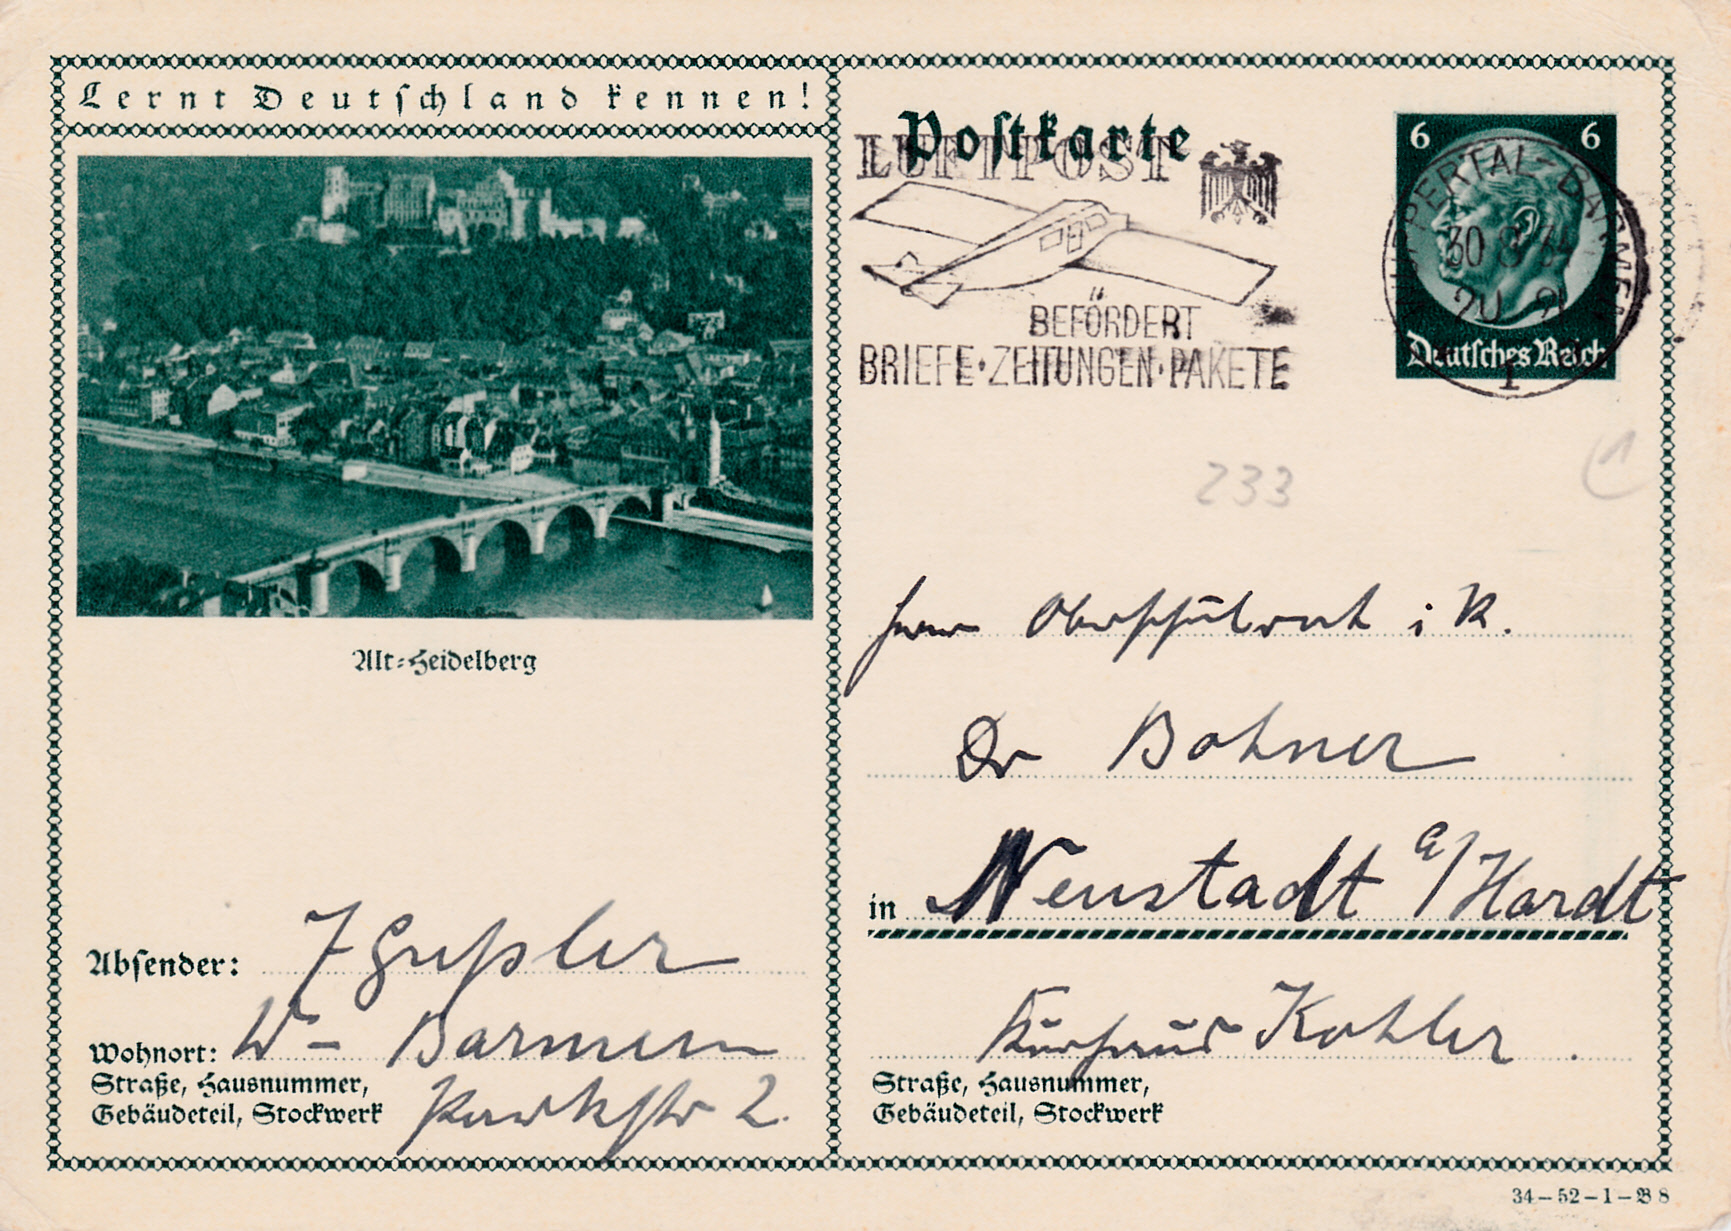 Lernt Deutschland kennen!
Alt-Heidelberg
Absender: J Gußler
Wohnort: W- Barmen
Straße, Hausnummer,
Gebäudeteil, Stockwerk
Parkstr 2.
Postkarte
LUFTPOST
BEFÖRDERT
BRIEFE·ZEITUNGEN·PAKETE
6 6
WUPPERTAL-BARMEN
30 8 34
20-21
1
Deutsches Reich
233
1
Herrn Oberschulrat i R.
Dr Bohner
in Neustadt a/Hardt
Kurhaus Kohler
Straße, Hausnummer,
Gebäudeteil, Stockwerk
34-52-1-B 8